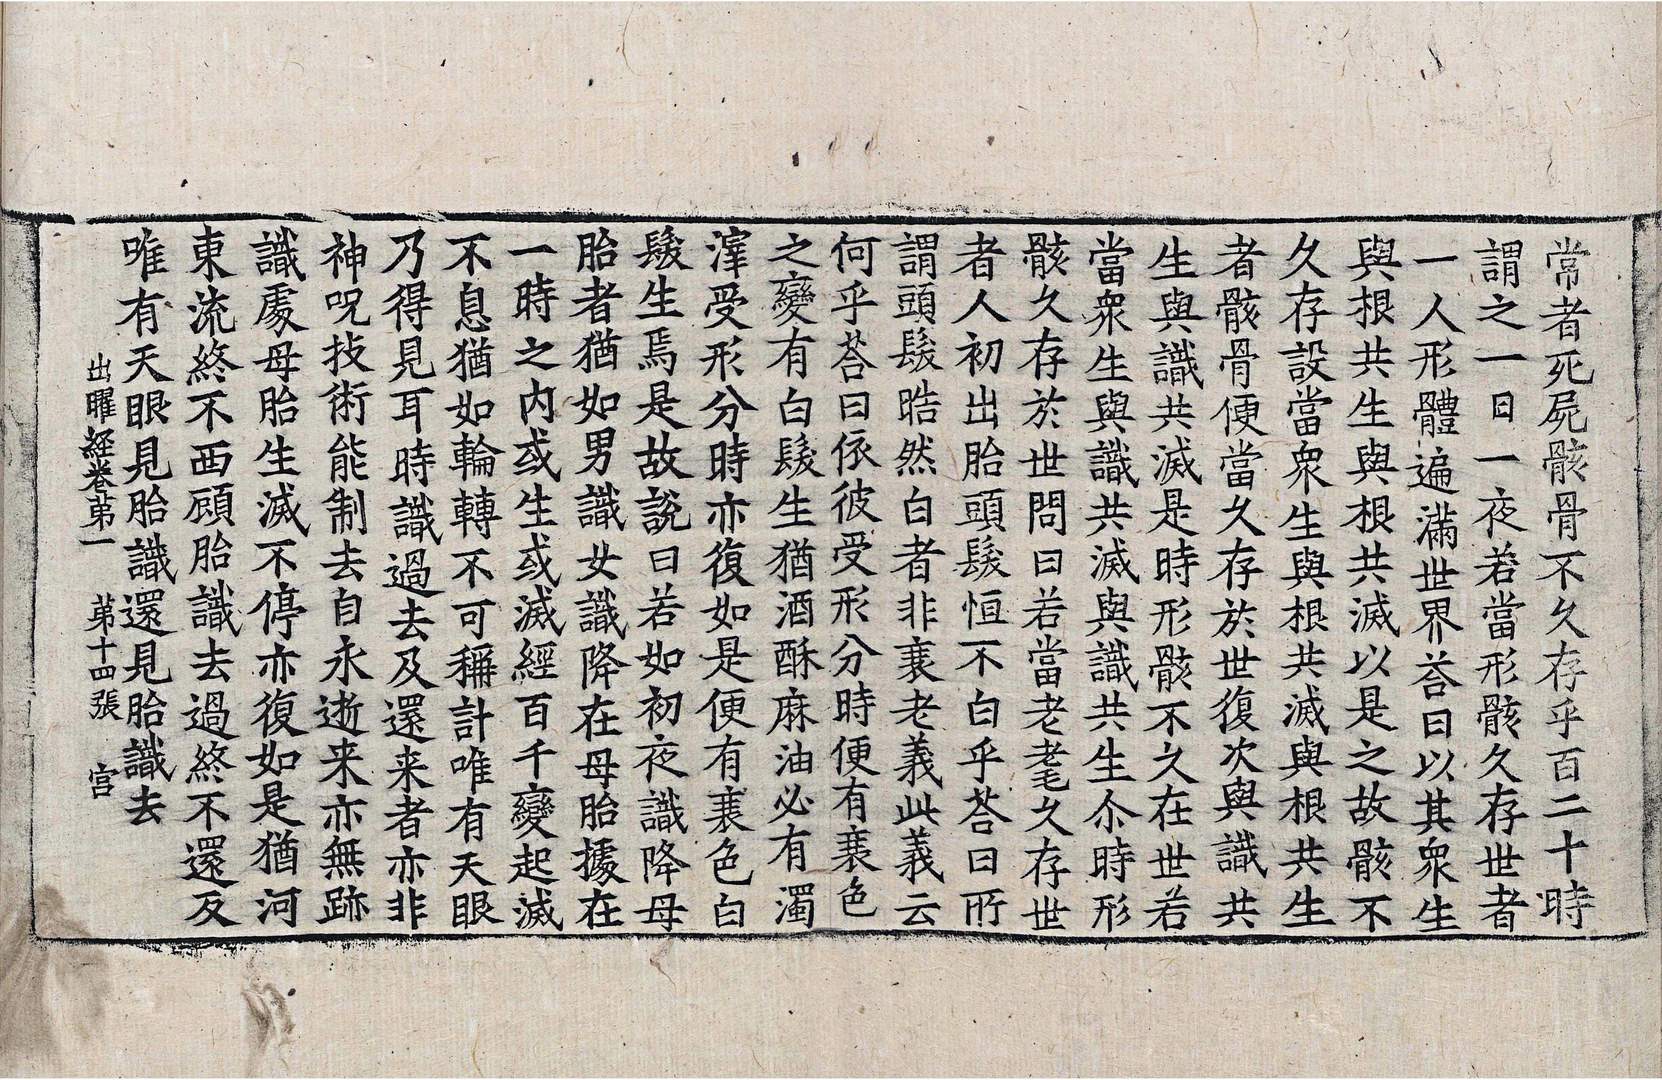 常者死屍骸骨不久存乎百二十時
謂之一日一夜若當形骸久存世者
一人形體遍滿世界荅曰以其衆生
與根共生與根共滅以是之故骸不
久存設當衆生與根共滅與根共生
者骸骨便當久存於世復次與識共
生與識共滅是時形骸不久在世若
當衆生與識共滅與識共生尒時形
骸久存於世問曰若當老耄久存世
者人初出胎頭髮恒不白乎荅曰所
謂頭髮晧然白者非衰老義此義云
何乎荅曰依彼受形分時便有衰色
之變有白髮生猶酒酥麻油必有濁
滓受形分時亦復如是便有衰色白
髮生焉是故說曰若如初夜識降母
胎者猶如男識女識降在母胎據在
一時之内或生或滅經百千變起滅
不息猶如輪轉不可稱計唯有天眼
乃得見耳時識過去及還来者亦非
神呪技術能制去自永逝来亦無跡
識處母胎生滅不停亦復如是猶河
東流終不西顧胎識去過終不還反
唯有天眼見胎識還見胎識去
出曜經卷第一 第十四張 宮